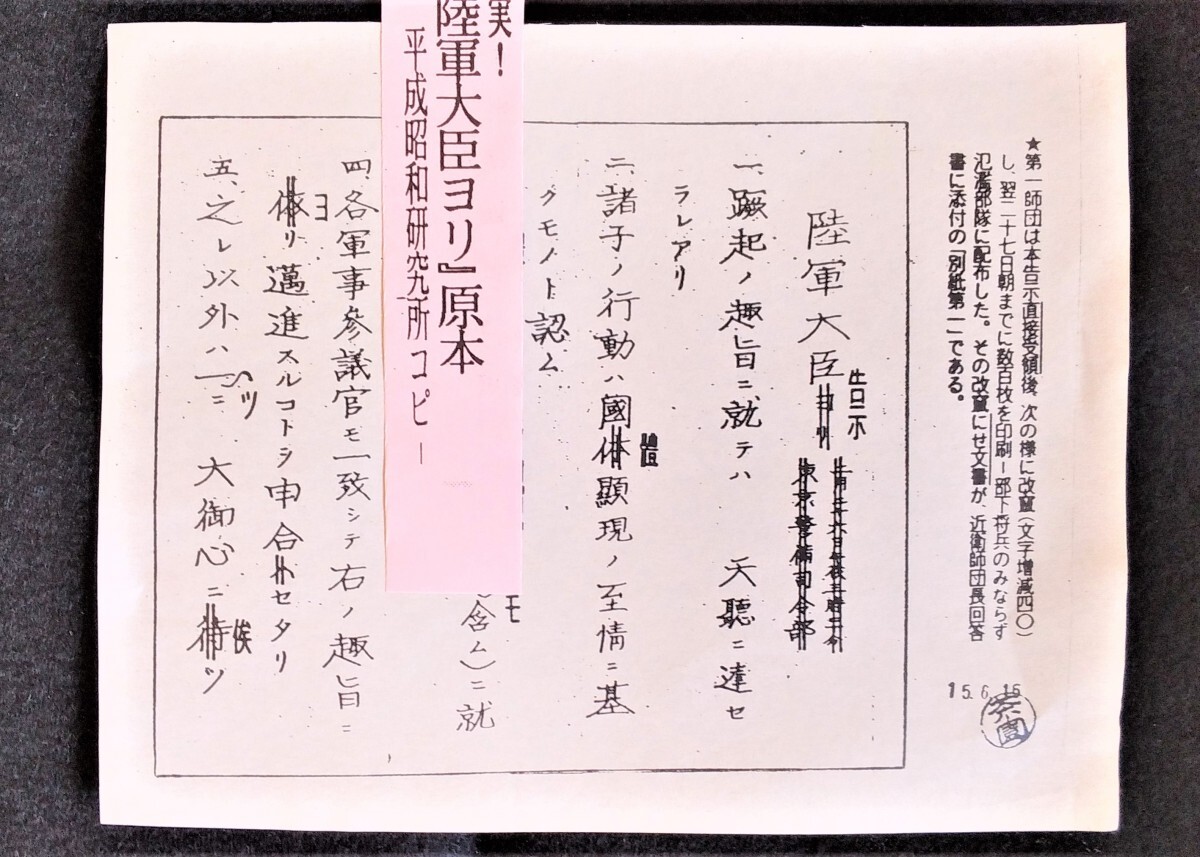 ★第一師団は本告示直接受領後、次の様に改竄(文字増減四〇)
し、翌二十七日朝までに数百枚を印刷ー部下将兵のみならず
氾濫部隊に配布した。その改竄にせ文書が、近衛師団長回答
書に添付の「別紙第一」である。
15.6.15
陸軍大臣ヨリ
告示
東京警備司令部
一、蹶起ノ趣旨ニ就テハ 天聽ニ達セ
ラレアリ
二、諸子ノ行動ハ國体顯現ノ至情ニ基
體
クモノト認ム
モ
含ム)ニ就
実!
陸軍大臣ヨリ』原本
平成昭和研究所コピー
四、各軍事參議官モ一致シテ右ノ趣旨ニ
ヨ
依リ邁進スルコトヲ申合ハセタリ
五、之レ以外ハ一ニ 大御心ニ待ツ
ツ
俟